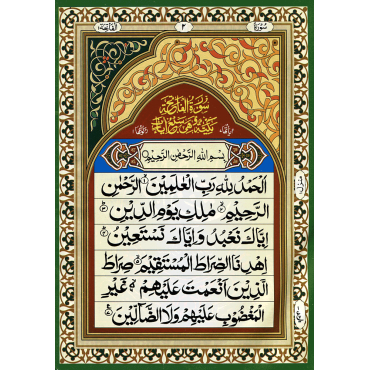 سورة ٢ الفاتحة ١
سُوْرَةُ الْفَاتِحَةِ
مَكِّيَّةٌ وَّهِيَ سَبْعُ اٰيَاتٍ
بِسْمِ اللّٰهِ الرَّحْمٰنِ الرَّحِيْمِ
اَلْحَمْدُ لِلّٰهِ رَبِّ الْعٰلَمِيْنَ الرَّحْمٰنِ
الرَّحِيْمِ مٰلِكِ يَوْمِ الدِّيْنِ
اِيَّاكَ نَعْبُدُ وَاِيَّاكَ نَسْتَعِيْنُ
اِهْدِنَا الصِّرَاطَ الْمُسْتَقِيْمَ صِرَاطَ
الَّذِيْنَ اَنْعَمْتَ عَلَيْهِمْ غَيْرِ
الْمَغْضُوْبِ عَلَيْهِمْ وَلَا الضَّآلِّيْنَ